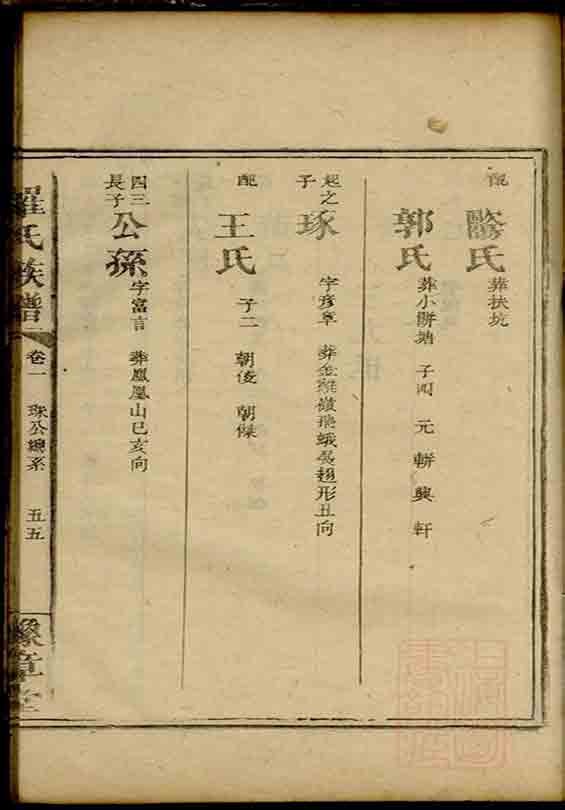 配 氏 葬扶坑
郭氏 葬小塘 子四 元 軿 輿 軒
起之子 琢 字彥章 葬金 嶺 蛾 形丑向
配 王氏 子二 朝俊 朝傑
四三長子 公孫 字富言 葬鳳凰山巳亥向
羅氏族譜 卷一 琢公總系 五五 豫章堂